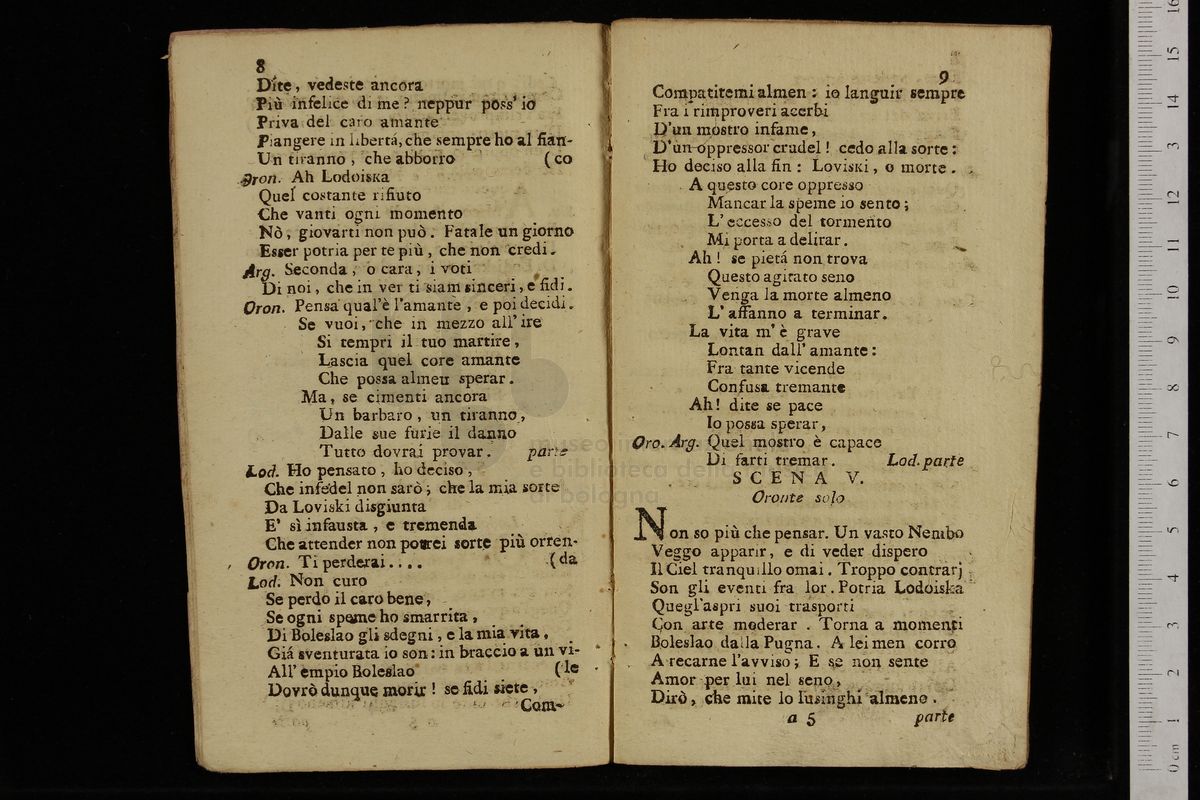 8
Dite, vedeste ancora
Più infelice di me? neppur poss' io
Priva del caro amante
Piangere in libertá, che sempre ho al fian-
Un tiranno, che abborro (co
Oron. Ah Lodoiska
Quel costante rifiuto
Che vanti ogni momento
Nò, giovarti non può. Fatale un giorno
Esser potria per te più, che non credi.
Arg. Seconda, o cara, i voti
Di noi, che in ver ti siam sinceri, e fidi.
Oron. Pensa qual'è l'amante, e poi decidi.
Se vuoi, che in mezzo all' ire
Si tempri il tuo martire,
Lascia quel core amante
Che possa almen sperar.
Ma, se cimenti ancora
Un barbaro, un tiranno,
Dalle sue furie il danno
Tutto dovrai provar. parte
Lod. Ho pensato, ho deciso,
Che infedel non sarò; che la mia sorte
Da Loviski disgiunta
E' sì infausta, e tremenda
Che attender non potrei sorte più orren-
Oron. Ti perderai.... (da
Lod. Non curo
Se perdo il caro bene,
Se ogni speme ho smarrita,
Di Boleslao gli sdegni, e la mia vita.
Giá sventurata io son: in braccio a un vi-
All' empio Boleslao (le
Dovrò dunque morir! se fidi siete,
Com-
9
Compatitemi almen: io languir sempre
Fra i rimproveri acerbi
D'un mostro infame,
D'un oppressor crudel! cedo alla sorte:
Ho deciso alla fin: Loviski, o morte.
A questo core oppresso
Mancar la speme io sento;
L' eccesso del tormento
Mi porta a delirar.
Ah! se pietá non trova
Questo agitato seno
Venga la morte almeno
L' affanno a terminar.
La vita m' è grave
Lontan dall' amante:
Fra tante vicende
Confusa tremante
Ah! dite se pace
Io possa sperar,
Oro. Arg. Quel mostro è capace
Di farti tremar. Lod. parte
SCENA V.
Oronte solo
Non so più che pensar. Un vasto Nembo
Veggo apparir, e di veder dispero
Il Ciel tranquillo omai. Troppo contrarj
Son gli eventi fra lor. Potria Lodoiska
Quegl'aspri suoi trasporti
Con arte moderar. Torna a momenti
Boleslao dalla Pugna. A lei men corro
A recarne l'avviso; E se non sente
Amor per lui nel seno,
Dirò, che mite lo lusinghi almeno.
a 5 parte
museo
e biblioteca della
di bologna
0 cm 1 2 3 4 5 6 7 8 9 10 11 12 13 14 15 16